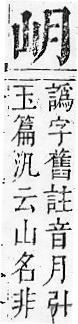 岄
譌字舊註音月引
玉篇汎云山名非